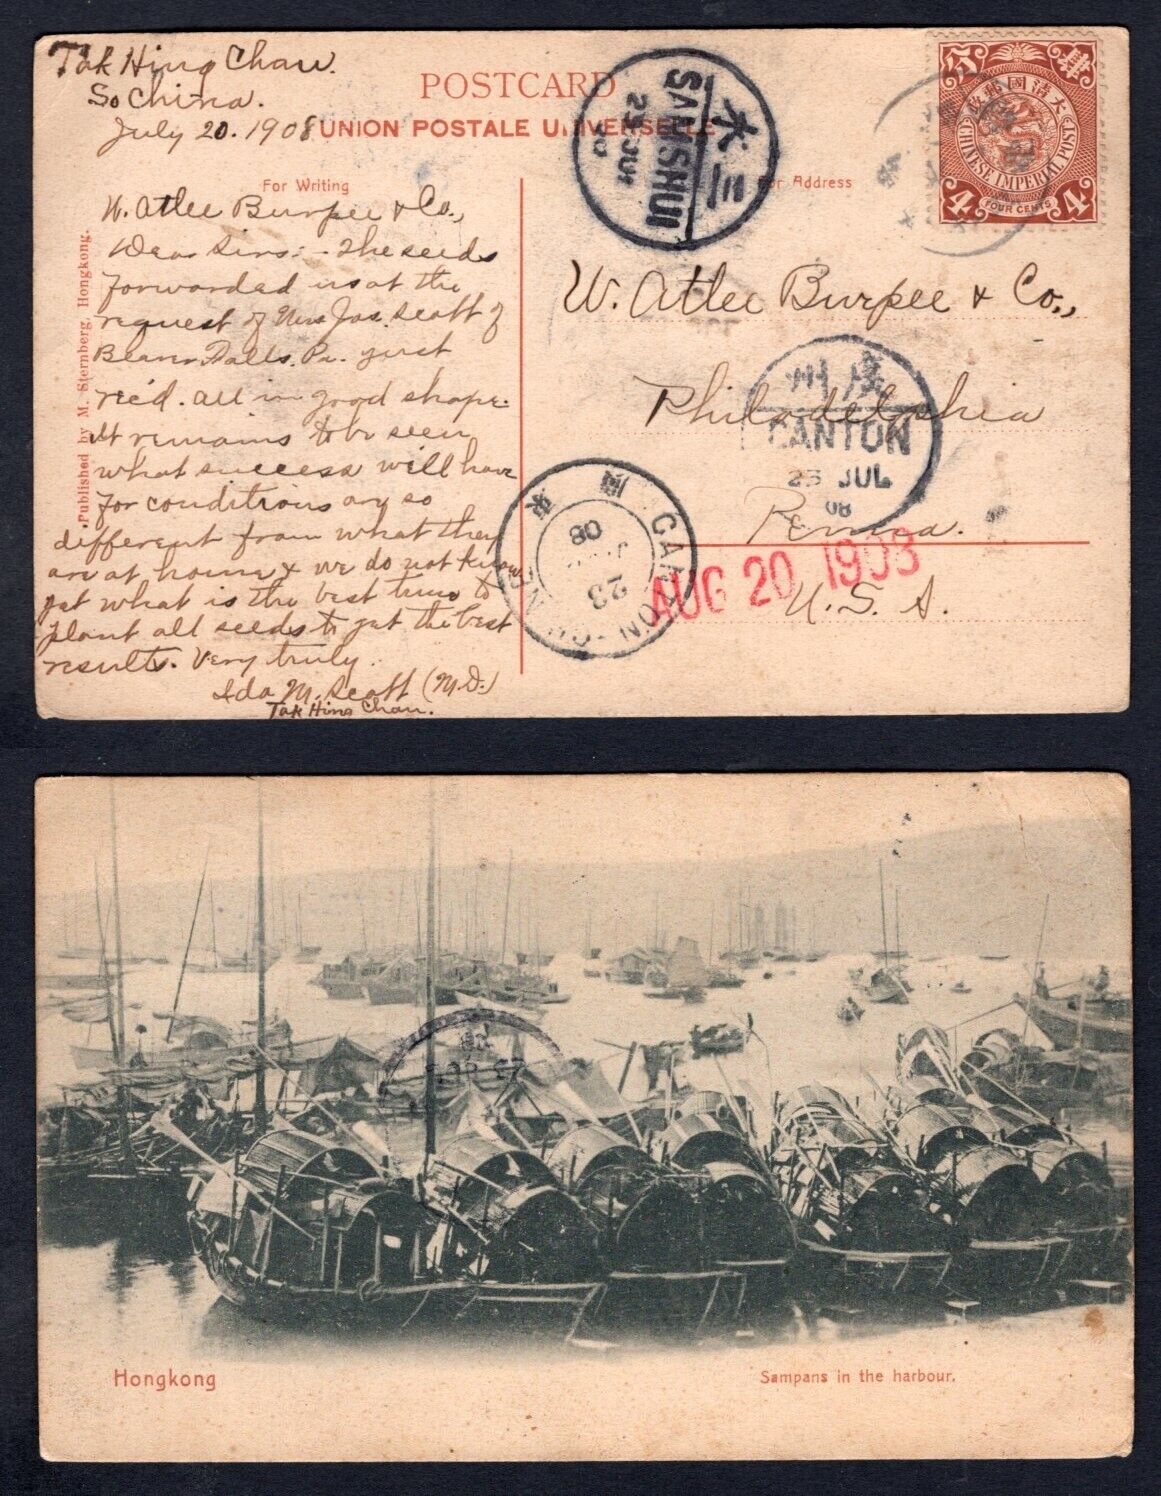 Tak Hing Chau.
So China.
July 20. 1908
POSTCARD
UNION POSTALE UNIVERSELLE
For Writing
For Address
Published by M. Sternberg, Hongkong.
W. Atlee Burpee & Co.,
Dear Sirs:- The seeds
forwarded us at the
request of Mrs Jas. Scott of
Beaver Falls. Pa. just
rec'd. All in good shape.
It remains to be seen
what success will have
for conditions are so
different from what they
are at home & we do not know
yet what is the best time to
plant all seeds to get the best
results. Very truly
Ida M. Scott (M.D.)
Tak Hing Chau.
三水
SAMSHUI
JUL
大清國郵政
肆
CHINESE IMPERIAL POST
4 FOUR CENTS 4
W. Atlee Burpee & Co.,
Philadelphia
Penna.
U. S. A.
廣州
CANTON
23 JUL
08
CANTON
23
08
AUG 20 1903
Hongkong
Sampans in the harbour.